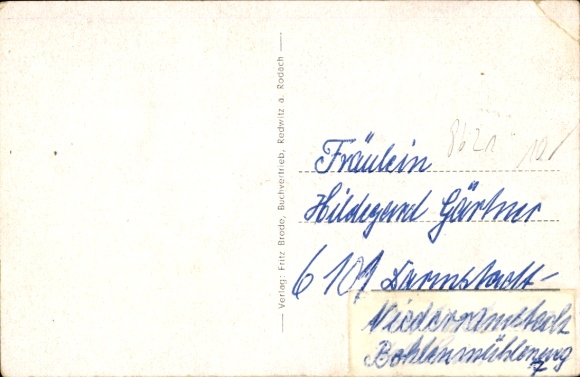 Verlag: Fritz Brode, Buchvertrieb, Redwitz a. Rodach
8621
10,
Fräulein
Hildegard Gärtner
6101 Darmstadt-
Niederramstadt
7